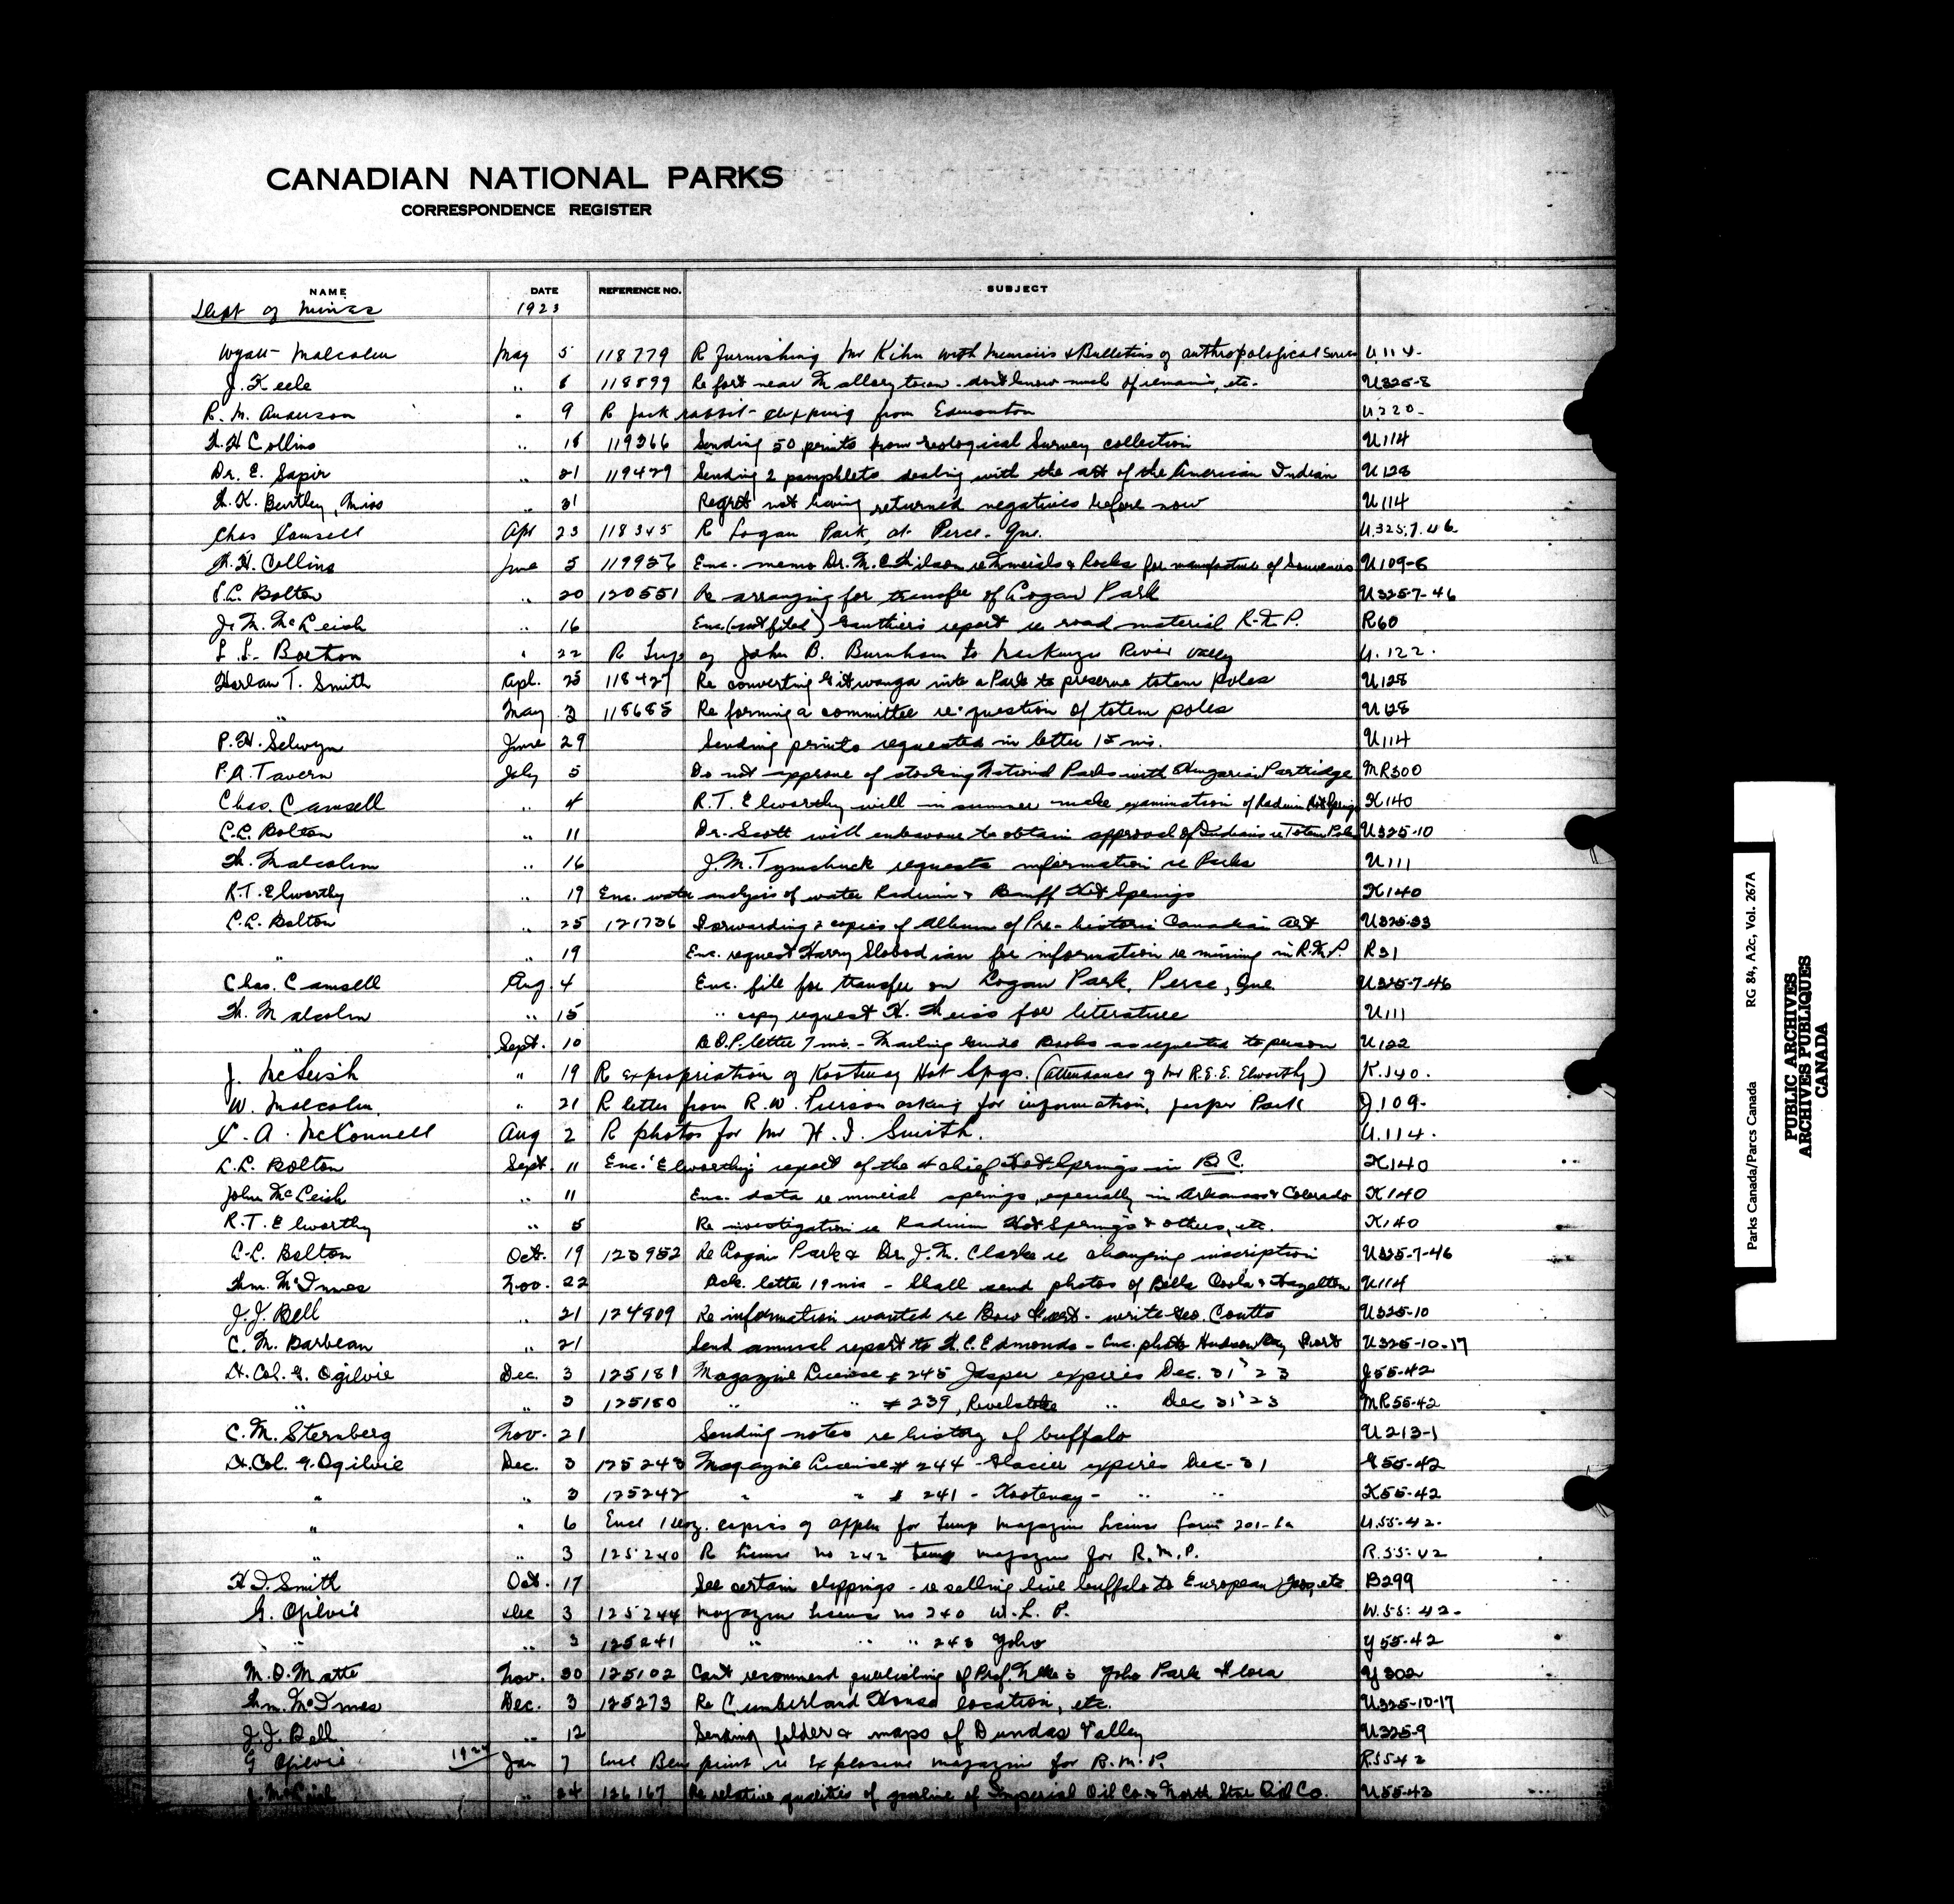 CANADIAN NATIONAL PARKS
CORRESPONDENCE REGISTER
NAME DATE REFERENCE NO. SUBJECT
Dept of Mines 1923
Wyatt Malcolm May 5 118779 R furnishing Mr Kihn with Memoirs & Bulletins of anthropological series U114.
J. Keele " 8 118899 Re fort near Mallorytown - don't know much of remains, etc. U325-8
R. M. Anderson " 9 R Jack rabbit - clipping from Edmonton U220-
W. H Collins " 18 119366 Sending 50 prints from Geological Survey collection U114
Dr. E. Sapir " 21 119429 Sending 2 pamphlets dealing with the art of the American Indian U128
Bentley, Miss " 31 Regret not having returned negatives before now U114
Chas Camsell Apr 23 118345 R Logan Park, at Perce. Que. U.325.7.46
W. H. Collins June 5 Enc. memo Dr. M. E. Wilson re Minerals & Rocks for manufacture of Souvenirs U109-6
L.L. Bolton " 20 120551 Re arranging for transfer of Logan Park U325-7-46
J. M. McLeish " 16 Enc. (not filed) Gauthier's report re road material R.M.P. R60
L. L. Bolton " 22 R Trip of John B. Burnham to Mackenzie River valley U.122.
Harlan T. Smith Apl. 25 118427 Re converting Gitwanga into a Park to preserve totem poles U128
" May 3 118685 Re forming a committee re question of totem poles U128
P. H. Selwyn June 29 Sending prints requested in letter 15 ins. U114
P.A. Tavern July 5 Do not approve of stocking National Parks with Hungarian Partridge MR300
Chas. Camsell " 4 R.T. Elworthy will in summer make examination of Radium Hot Springs K140
L.L. Bolton " 11 Dr. Scott will endeavour to obtain approval of Indians re Totem Poles U325-10
W. Malcolm " 16 J.M. Tymchuck requests information re Parks U111
R.T. Elworthy " 19 Enc. water analysis of water Radium & Banff Hot Springs K140
L.L. Bolton " 25 121736 Forwarding 2 copies of Album of Pre-historic Canadian Art U325-33
" 19 Enc. request Harry Slobodian for information re mining in R.M.P. R31
Chas. Camsell Aug 4 Enc. file for transfer on Logan Park, Perce, Que U325-7-46
W. Malcolm " 15 " copy request H. Theiss for literature U111
" Sept. 10 letter 7 ins. - Mailing Guide Books as requested to person U122
J. McLeish " 19 R expropriation of Kootenay Hot Spgs. (attendance of Mr R.E.E. Elworthy) K.140.
W. Malcolm. " 21 R letter from R. W. Pierson asking for information, Jasper Park J109-
A. McConnell Aug 2 R photos for Mr H. I. Smith. U.114.
L.L. Bolton Sept. 11 Enc. Elworthy's report of the 4 chief Hot Springs in B.C. K140
John McLeish " 11 Enc. data re mineral springs, especially in Arkansas & Colorado K140
R.T. Elworthy " 5 Re investigation re Radium Hot Springs & others, etc. K140
L.L. Bolton Oct. 19 123952 Re Logan Park & Dr. J.M. Clarke re changing inscription U325-7-46
Wm. McInnes Nov. 22 Ack. letter 19 ins - Shall send photos of Bella Coola & Hazelton U114
J. J. Bell " 21 124809 Re information wanted re Bow Fort - write Geo. Coutts U325-10
C. M. Barbeau " 21 Send annual report to W.C. Edmonds - Enc. photo Hudson Bay Fort U325-10-17
Lt. Col. G. Ogilvie Dec. 3 125181 Magazine License # 245 Jasper expires Dec. 31 '23 J55-42
" " 3 125180 " " # 239, Revelstoke " Dec 31 '23 MR55-42
C. M. Sternberg Nov. 21 Sending notes re history of buffalo U213-1
Lt. Col. G. Ogilvie Dec. 3 125243 Magazine License # 244 - Glacier expires Dec-31 G55-42
" " 3 125242 " " # 241 - Kootenay - " " K55-42
" " 6 Encl 1 doz. copies of appln for temp magazine license form 201-La U.55-42.
" " 3 125240 R license no 242 temp magazine for R.M.P. R.55-42
H I. Smith Oct. 17 See certain clippings - re selling live buffalo to European zoos, etc. B299
G. Ogilvie Dec 3 125244 Magazine license no 240 W.L.P. W.55:42.
" " 3 125241 " " " 243 Yoho Y55-42
M. O. Malte Nov. 30 125102 Can't recommend publishing of Prof. Yoho Park Flora Y302
Wm. McInnes Dec. 3 125273 Re Cumberland House location, etc. U325-10-17
J. J. Bell " 12 Sending folder & maps of Dundas Valley U325-9
G Ogilvie 1924 Jan 7 Encl Blue print re Explosive magazine for R.M.P. R5542
J. McLeish " 24 126167 Re relative qualities of gasoline of Imperial Oil Co. & North Star Oil Co. U55-43
Parks Canada/Parcs Canada RG 84, A2c, Vol. 267A
PUBLIC ARCHIVES
ARCHIVES PUBLIQUES
CANADA